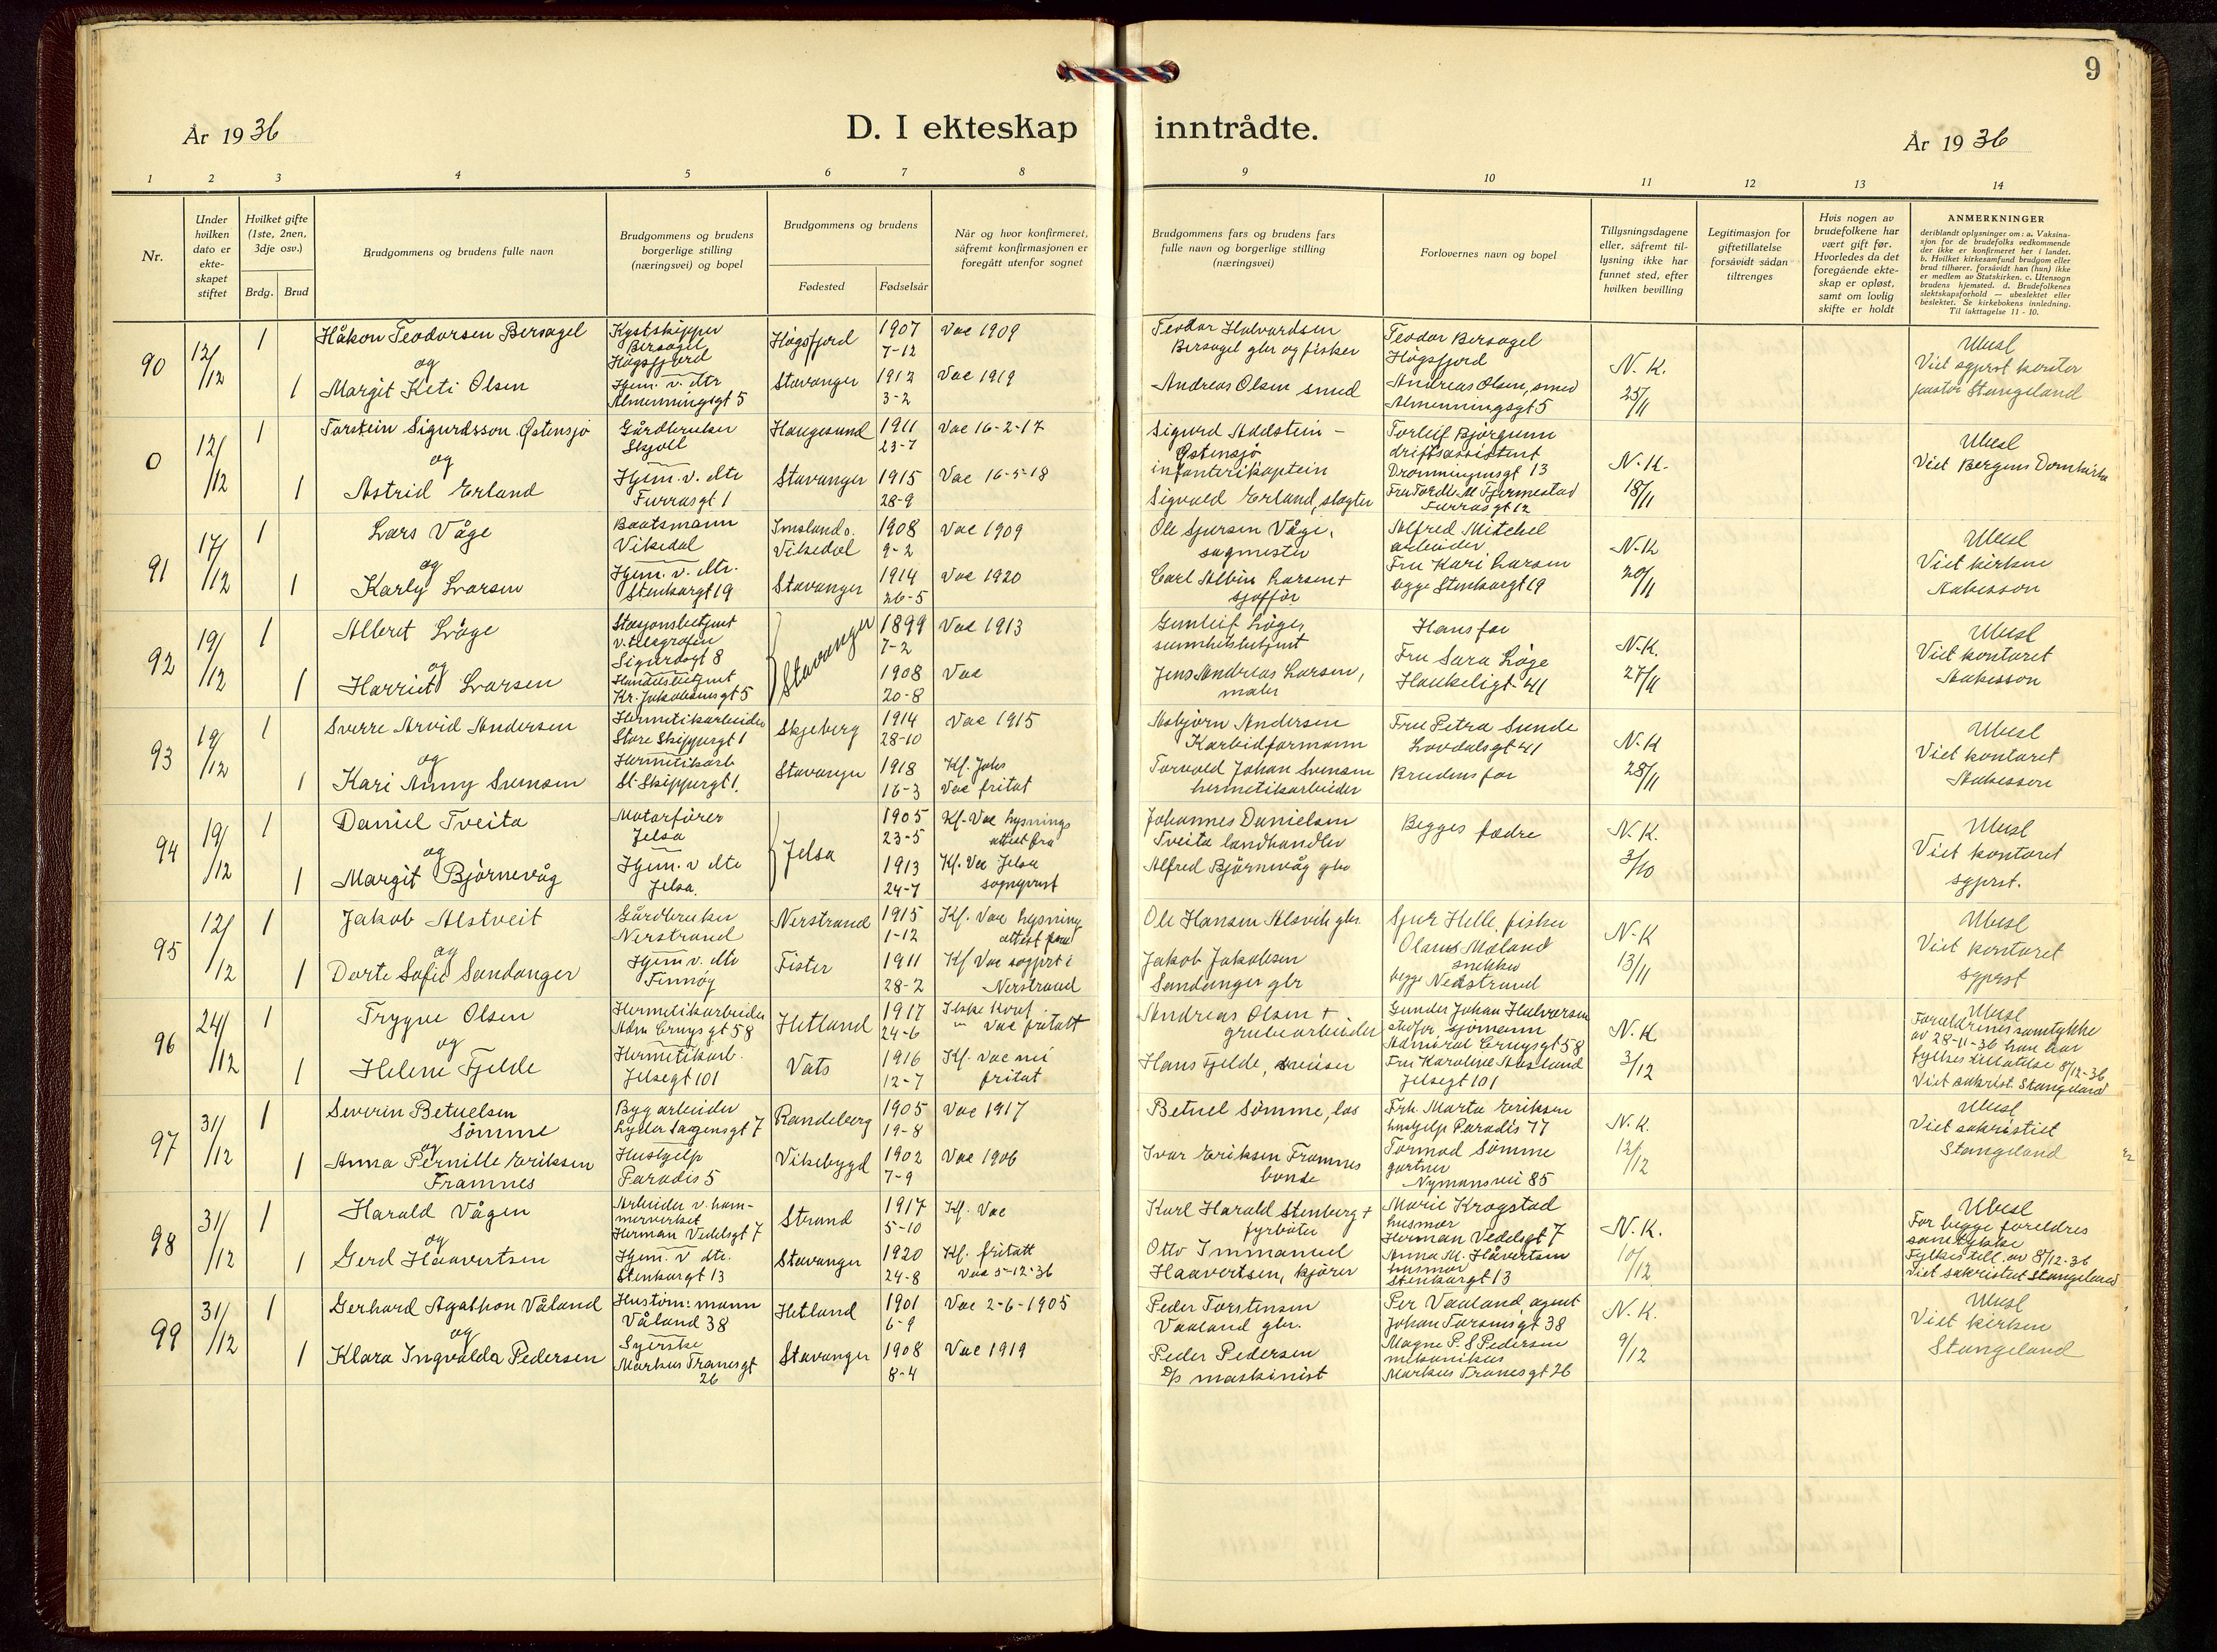 9
År 1936
D. I ekteskap inntrådte.
År 1936
1 2 3 4 5 6 7 8 9 10 11 12 13 14
Nr.
Under hvilken dato er ekteskapet stiftet
Hvilket gifte (1ste, 2nen, 3dje osv.)
Brdg. Brud
Brudgommens og brudens fulle navn
Brudgommens og brudens borgerlige stilling (næringsvei) og bopel
Brudgommens og brudens
Fødested
Fødselsår
Når og hvor konfirmeret, såfremt konfirmasjonen er foregått utenfor sognet
Brudgommens fars og brudens fars fulle navn og borgerlige stilling (næringsvei)
Forlovernes navn og bopel
Tillysningsdagene eller, såfremt tillysning ikke har funnet sted, efter hvilken bevilling
Legitimasjon for giftetillatelse forsåvidt sådan tiltrenges
Hvis nogen av brudefolkene har vært gift før. Hvorledes da det foregående ekteskap er opløst, samt om lovlig skifte er holdt
ANMERKNINGER
deriblandt oplysninger om: a. Vaksinasjon for de brudefolks vedkommende der ikke er konfirmeret her i landet. b. Hvilket kirkesamfund brudgom eller brud tilhører, forsåvidt han (hun) ikke er medlem av Statskirken. c. Utensogn brudens hjemsted. d. Brudefolkenes slektskapsforhold — ubeslektet eller beslektet. Se kirkebokens innledning. Til iakttagelse 11 - 10.
90
12/12
1
Håkon Teodorsen Bersagel
Kystskipper
Bersagel
Høgsfjord
Høgsfjord
1907
7-12
Vac 1909
Teodor Halvardsen
Bersagel gbr og fisker
Teodor Bersagel
Høgsfjord
N.K.
25/11
Ubesl
Viet sgprst kontor
pastor Stangeland
og
1
Margit Keti Olsen
Hjem. v. dtr
Almenningsgt 5
Stavanger
1912
3-2
Vac 1919
Andreas Olsen smed
Andreas Olsen, smed
Almenningsgt 5
0
12/12
1
Torstein Sigurdsson Østensjø
Gårdbruker
Skjoll
Haugesund
1911
23-7
Vac 16-2-17
Sigurd Adelstein -
Østensjø
infanterikaptein
Torleif Bjørgum
driftsassistent
Dronningensgt 13
N.K.
18/11
Ubesl
Viet Bergens Domkirke
og
1
Astrid Erland
Hjem. v. dtr
Furrasgt 1
Stavanger
1915
28-9
Vac 16-5-18
Sigvald Erland, slagter
Furrasgt 12
91
17/12
1
Lars Våge
Baatsmann
Vikedal
Imslands.
Vikedal
1908
9-2
Vac 1909
Ole Sjursen Våge,
sagmester
Alfred Mitchel
arbeider
N.K
20/11
Ubesl
Viet kirken
Aakesson
og
1
Karly Larsen
Hjem. v. dtr.
Stenkargt 19
Stavanger
1914
26-5
Vac 1920
Carl Albin Larsen +
sjoffør
Fru Kari Larsen
begge Stenkargt 19
92
19/12
1
Albert Låge
Stasjonsbetjent
v. telegrafen
Sigurdsgt 8
Stavanger
1899
7-2
Vac 1913
Gunleif Låge,
sunnhetsbetjent
Hans far
N.K.
27/11
Ubesl
Viet kontoret
Aakesson
og
1
Harriet Larsen
Handelsbetjent
Kr. Jakobsensgt 5
1908
20-8
Vac
Jens Andreas Larsen,
maler
Fru Sara Låge
Haukeligt 41
93
19/12
1
Sverre Arvid Andersen
Hermetikarbeider
Store Skippergt 1
Skjeberg
1914
28-10
Vac 1915
Asbjørn Andersen
Karbidformann
Fru Petra Sunde
Lovdalsgt 41
N.K
28/11
Ubesl
Viet kontoret
Aakesson
og
1
Kari Anny Svensen
Hermetikarb
St. Skippergt 1.
Stavanger
1918
16-3
Kf. Johs
Vac fritat
Torvald Johan Svensen
hermetikarbeider
Brudens far
94
19/12
1
Daniel Tveita
Motorfører
Jelsa
Jelsa
1905
23-5
Kf. Vac lysnings
attest fra
Johannes Danielsen
Tveita landhandler
Begges fædre
N.K.
3/10
Ubesl
Viet kontoret
sgprst.
og
1
Margit Bjørnevåg
Hjem. v dtr
Jelsa.
1913
24-7
Kf. Vac Jelsa
sogneprest
Alfred Bjørnevåg gbr
95
12/12
1
Jakob Alstveit
Gårdbruker
Nerstrand
Nerstrand
1915
1-12
Kf. Vac lysning
attest fra
Ole Hansen Alsvik gbr.
Sjur Helle, fisker
N.K
13/11
Ubesl
Viet kontoret
sgprst
og
1
Dorte Sofie Sandanger
Hjem v. dtr
Finnøy
Fister
1911
28-2
Kf Vac sogprst i
Nerstrand
Jakob Jakobsen
Sandanger gbr
Olaus Maland
snekker
begge Nedstrand
96
24/12
1
Trygve Olsen
Hermetikarbeider
Adm Cruys gt 58
Hetland
1917
24-6
Ikke konf.
" Vac fritatt
Andreas Olsen +
grubearbeider
Gunder Johan Halvorsen
stefar, sjømann
Admiral Cruysgt 58
N.K.
3/12
Ubesl
Foreldrenes samtykke
av 28-11-36 han har
fylkestillatelse 8/12-36
Viet sakrist. Stangeland
og
1
Helene Fjelde
Hermetikarb.
Jelsegt 101
Vats
1916
12-7
Kf. vac nei
fritat
Hans Fjelde, sveiser
Fru Karoline Aasland
Jelsegt 101
97
31/12
1
Severin Betuelsen
Sømme
Bygarbeider
Lyder Sagensgt 7
Randeberg
1905
19-8
Vac 1917
Betuel Sømme, los
Frk. Marta Eriksen
hushjelp Paradis 77
N.K.
12/12
Ubesl
Viet sakristiet
Stangeland
og
1
Anna Pernille Eriksen
Framnes
Hushjelp
Paradis 5
Vikebygd
1902
7-9
Vac 1906
Ivar Eriksen Framnes
bonde
Tormod Sømme
gartner
Nymansvei 85
98
31/12
1
Harald Vågen
Arbeider v. ham-
merverket
Herman Vedelsgt 7
Strand
1917
5-10
Kf. Vac
Karl Harald Stenberg +
fyrbøter
Marie Krogstad
husmor
Herman Vedelsgt 7
N.K.
10/12
Ubesl
For begge foreldres
samtykke
Fylkestill. av 8/12-36
Viet sakristiet Stangeland
og
1
Gerd Haavertsen
Hjem. v dtr.
Stenkargt 13
Stavanger
1920
24-8
Kf. fritatt
Vac 5-12-36
Otto Immanuel
Haavertsen, kjører
Anna M. Håvertsen
husmor
Stenkargt 13
99
31/12
1
Gerhard Agathon Våland
Hustøm: mann
Våland 38
Hetland
1901
6-9
Vac 2-6-1905
Peder Torstensen
Vaaland gbr.
Per Vaaland agent
Johan Torsensgt 38
N.K.
9/12
Ubesl
Viet kirken
Stangeland
og
1
Klara Ingvalda Pedersen
Syerske
Markus Tranesgt
26
Stavanger
1908
8-4
Vac 1919
Peder Pedersen
D/s maskinist
Magne P. S Pedersen
mekanikus
Markus Tranesgt 26